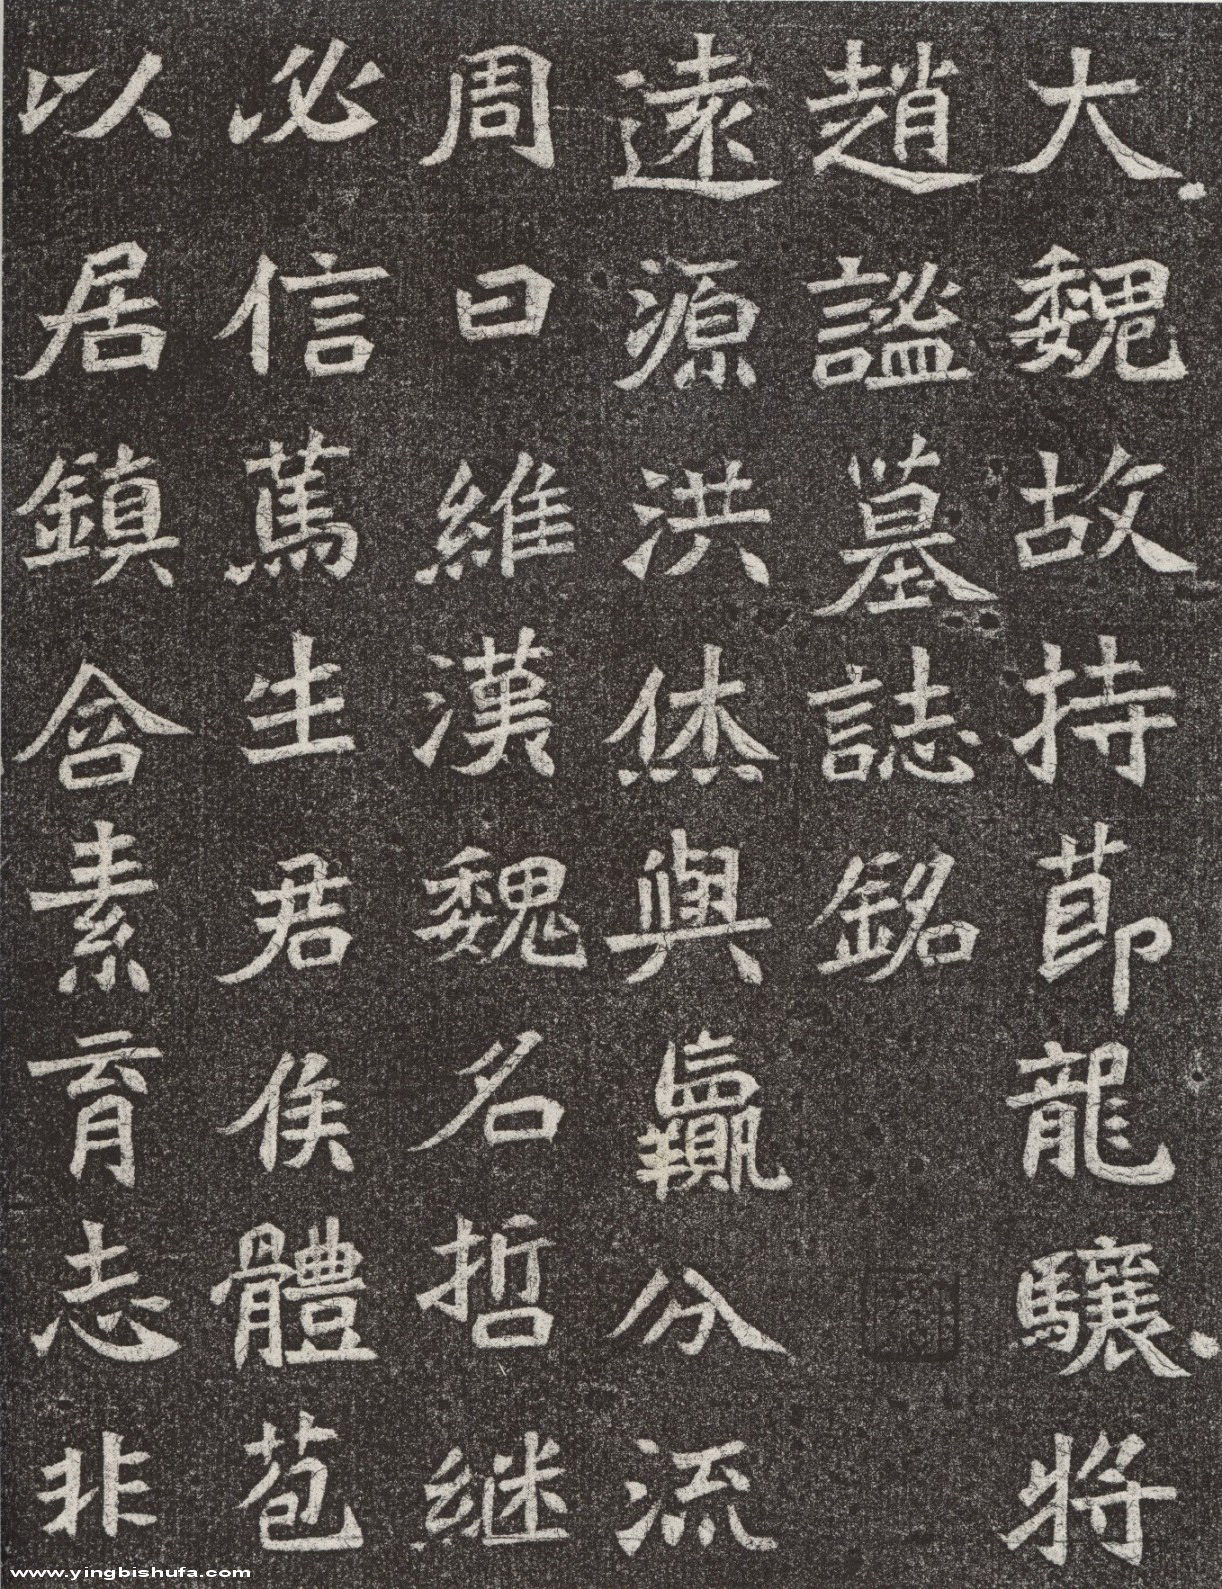 大魏故持節龍驤將
趙謐墓誌銘
遠源洪休與嬴分流
周曰維漢魏名哲继
必信篤生君侯體苞
以居鎮含素育志非
www.yingbishufa.com